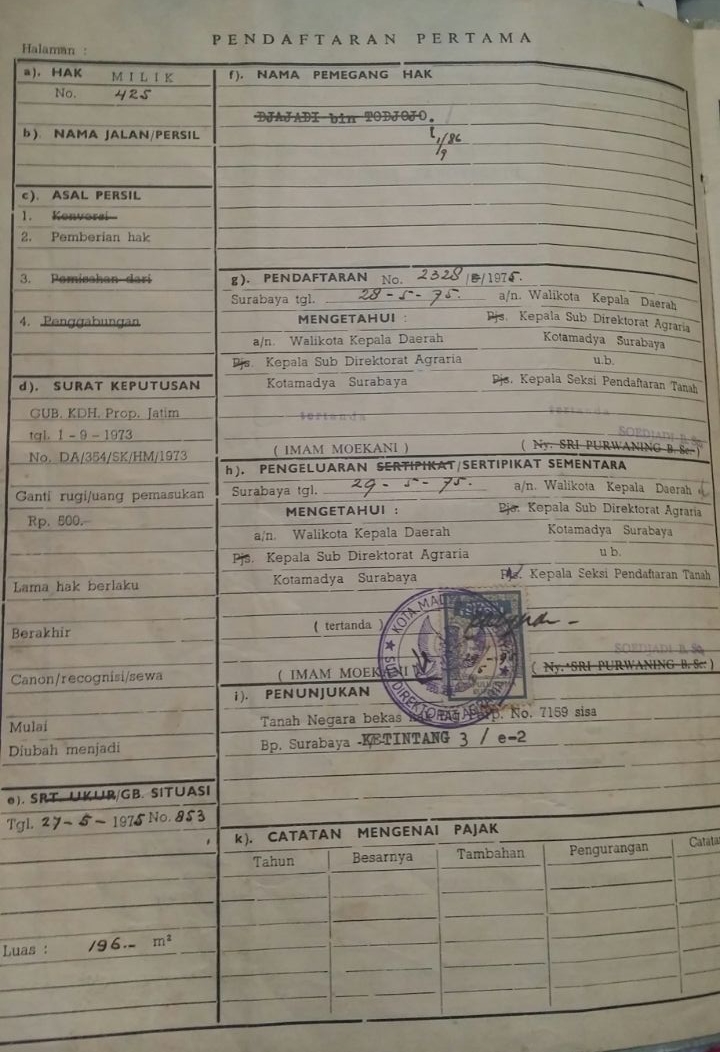 PENDAFTARAN PERTAMA
Halaman :
a). HAK MILIK
No. 425
b). NAMA JALAN/PERSIL
c). ASAL PERSIL
1. Konversi
2. Pemberian hak
3. Pemisahan dari
4. Penggabungan
d). SURAT KEPUTUSAN
GUB. KDH. Prop. Jatim
tgl. 1 - 9 - 1973
No. DA/354/SK/HM/1973
Ganti rugi/uang pemasukan
Rp. 500.-
Lama hak berlaku
Berakhir
Canon/recognisi/sewa
Mulai
Diubah menjadi
e). SRT. UKUR/GB. SITUASI
Tgl. 27-5-1975 No. 853
Luas : 196.- m²
f). NAMA PEMEGANG HAK
DJAJADI bin TODJOJO.
g). PENDAFTARAN No. 2328 / /1975.
Surabaya tgl. 28-5-75. a/n. Walikota Kepala Daerah
MENGETAHUI : Pjs. Kepala Sub Direktorat Agraria
a/n. Walikota Kepala Daerah Kotamadya Surabaya
Pjs. Kepala Sub Direktorat Agraria u.b.
Kotamadya Surabaya Pjs. Kepala Seksi Pendaftaran Tanah
tertanda tertanda
SOEDJADI B. Sc.
( IMAM MOEKANI ) ( Ny. SRI PURWANING B. Sc. )
h). PENGELUARAN SERTIPIKAT/SERTIPIKAT SEMENTARA
Surabaya tgl. 29-5-75. a/n. Walikota Kepala Daerah
MENGETAHUI : Pjs. Kepala Sub Direktorat Agraria
a/n. Walikota Kepala Daerah Kotamadya Surabaya
Pjs. Kepala Sub Direktorat Agraria u b.
Kotamadya Surabaya Pjs. Kepala Seksi Pendaftaran Tanah
( tertanda )
SOEDJADI B. Sc.
( IMAM MOEKANI ) ( Ny. SRI PURWANING B. Sc. )
SUB DIREKTORAT AGRARIA
i). PENUNJUKAN
Tanah Negara bekas Parp. No. 7159 sisa
Bp. Surabaya - KETINTANG 3 / e-2
k). CATATAN MENGENAI PAJAK
Tahun Besarnya Tambahan Pengurangan